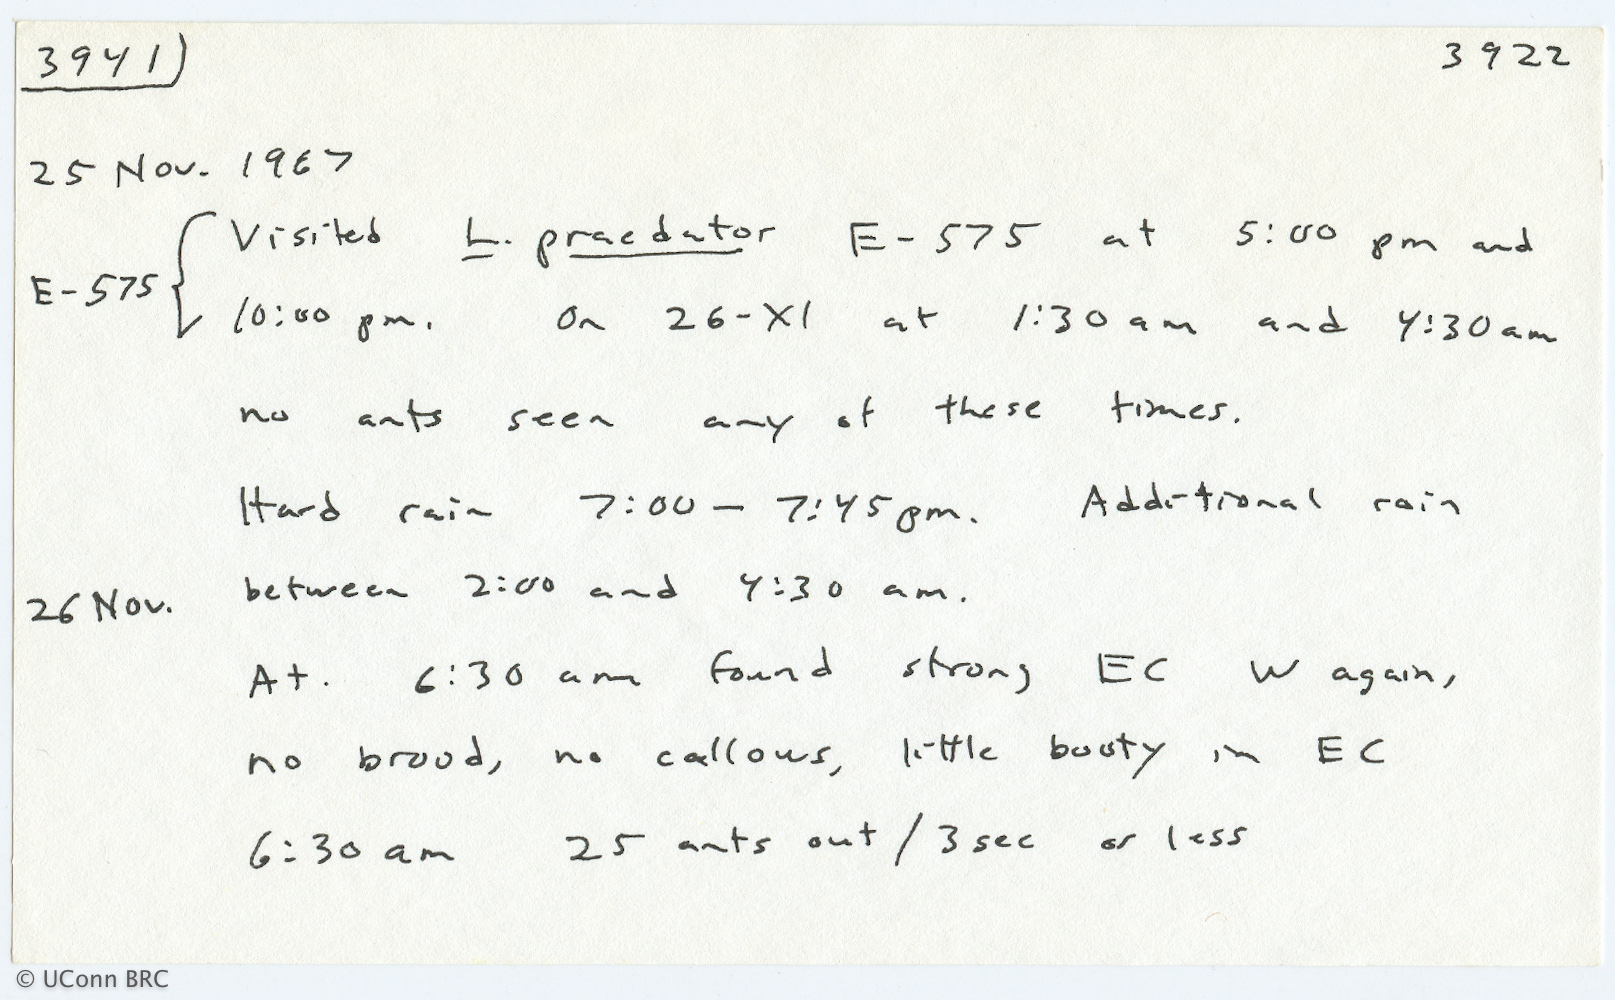 3941)
3922
25 Nov. 1967
E-575
Visited L. praedator E-575 at 5:00 pm and
10:00 pm. On 26-XI at 1:30 am and 4:30 am
no ants seen any of these times.
Hard rain 7:00 - 7:45 pm. Additional rain
between 2:00 and 4:30 am.
26 Nov.
At. 6:30 am found strong EC W again,
no brood, no callows, little booty in EC
6:30 am 25 ants out / 3 sec or less
© UConn BRC